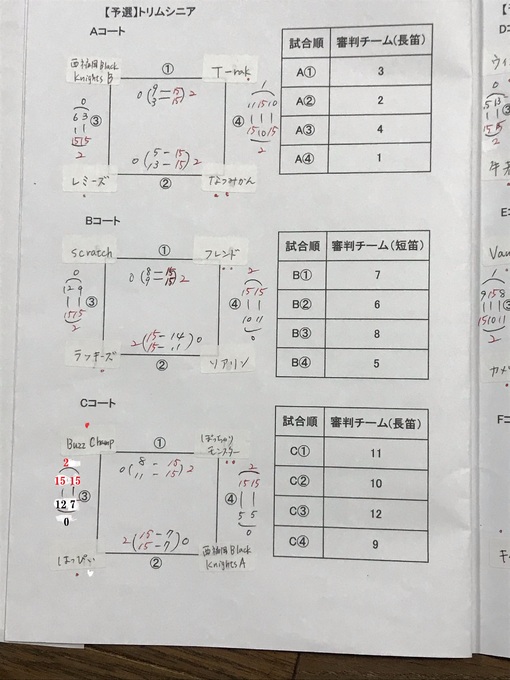 【予選】トリムシニア
Aコート
西福岡Black
Knights B
①
T-rak
0(9-15
3-15)2
0
6 3
15 15
2
③
1
11 15 10
15 10 15
2
④
0(5-15
13-15)2
レミーズ
②
なつみかん
試合順 審判チーム(長笛)
A① 3
A② 2
A③ 4
A④ 1
Bコート
scratch
①
フレンド
0(8-15
9-15)2
0
12 9
15 15
2
③
2
15 15
10 11
0
④
2(15-14
15-11)0
ラッキーズ
②
リアリン
試合順 審判チーム(短笛)
B① 7
B② 6
B③ 8
B④ 5
Cコート
Buzz Champ
①
ぽっちゃり
モンスター
0(8-15
11-15)2
2
15 15
12 7
0
③
2
15 15
5 5
0
④
2(15-7
15-7)0
はっぴぃ
②
西福岡Black
Knights A
試合順 審判チーム(長笛)
C① 11
C② 10
C③ 12
C④ 9